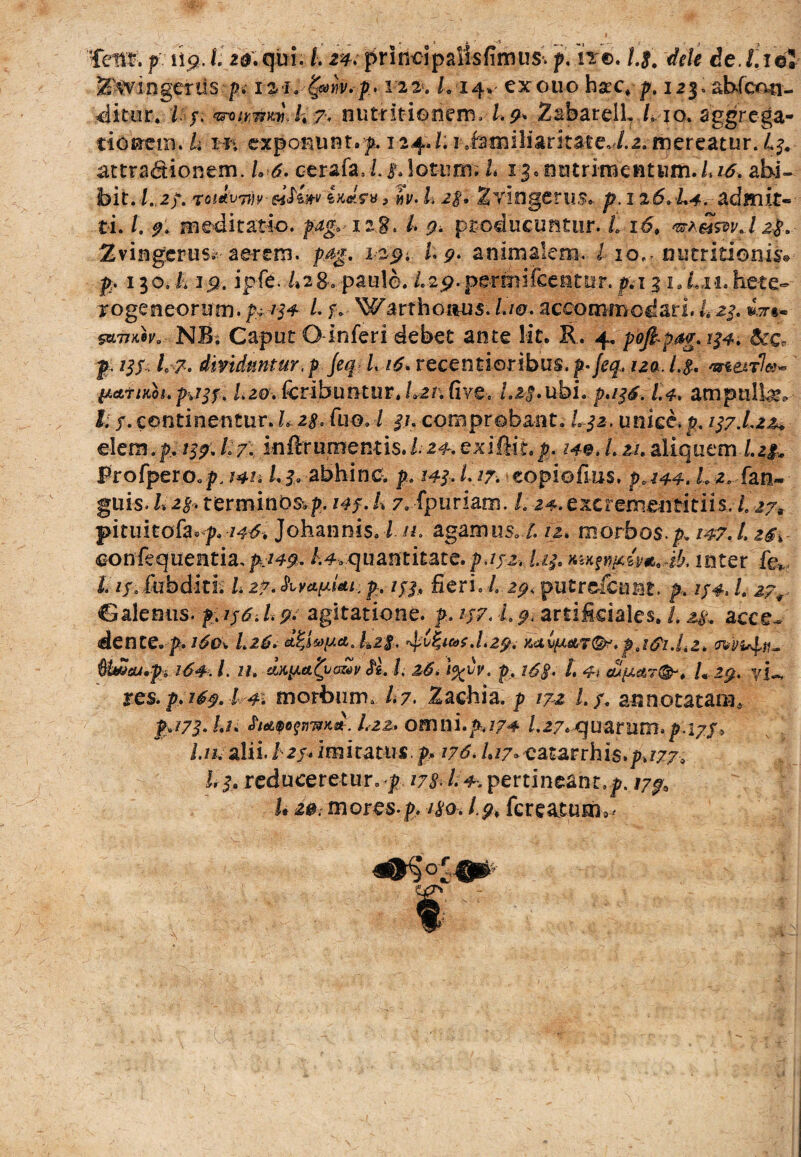 sent. p. 119. l. 20. qui. l. 24. principalissimus. p. 120. l. 8. dele de. l. 10.
Zwingerus p. 121. ζωὴν. p. 122. l. 14. ex quo hæc. p. 123. abscon-
ditur. l. 5. l. 7. nutritionem. l. 9. Zabarell. l. 10. aggrega-
tionem. l. 11. exponunt. p. 124. l. 1. familiaritate. l. 2. mereatur. l. 3.
attractionem. l. 6. cerasa. l. 8. lotum. l. 13. nutrimentum. l. 16. abi-
bit. l. 25. l. 28. Zvingerus. p. 126. l. 4. admit-
ti. l. 9. meditatio. pag. 128. l. 9. producuntur. l. 16. l 28.
Zvingerus. aerem. pag. 129. l. 9. animalem. l 10. nutritionis.
p. 130. l. 19. ipse. l. 28. paulò. l. 29. permiscentur. p. 131. l. 11. hete-
rogeneorum. p. 134 l. 5. Warthonus. l. 10. accommodari. l. 23.
NB. Caput O inferi debet ante lit. R. 4. post. pag. 134. &c.
p. 135. l. 7. dividuntur. p seq. l. 16. recentioribus. p. seq. 120. l. 8.
p. 135. l. 20. scribuntur. l. 21. sive. l. 28. ubi. p. 136. l. 4. ampullæ.
l. 5. continentur. l. 28. suo. l 31. comprobant. l. 32. unicè. p. 137. l. 22.
elem. p. 139. l. 7. instrumentis. l. 24. existit. p. 140. l. 21. aliquem l. 28.
Prospero. p. 141. l. 3. abhinc. p. 143. l. 17. copiosius. p. 144. l. 2. san-
guis. l. 28. terminos. p. 145. l. 7. spuriam. l. 24. excrementitiis. l. 27.
pituitosa. p. 146. Johannis. l. 11. agamus. l. 12. morbos. p. 147. l. 26.
consequentia. p. 149. l. 4. quantitate. p. 152. l. 13. ib. inter se.
l. 15. subditi. l. 27. p. 153. fieri. l. 29. putrescunt. p. 154. l. 27.
Galenus. p. 156. l. 9. agitatione. p. 157. l. 9. artificiales. l. 28. acce-
dente. p. 160. l. 26. ἀξίωμα. l. 28. l. 29. p. 161. l. 2.
p. 164. l. 11. l. 26. ἰσχὺν. p. 168. l. 4. l. 29. vi-
res. p. 169. l 4. morbum. l. 7. Zachia. p 172 l. 5. annotatam.
p. 173. l. 1. l. 22. omni. p. 174 l. 27. quarum. p. 175.
l. 11. alii. l 25. imitatus. p. 176. l. 17. catarrhis. p. 177.
l. 3. reduceretur. p 178. l. 4. pertineant. p. 179.
l. 20. mores. p. 180. l. 9. screatum.